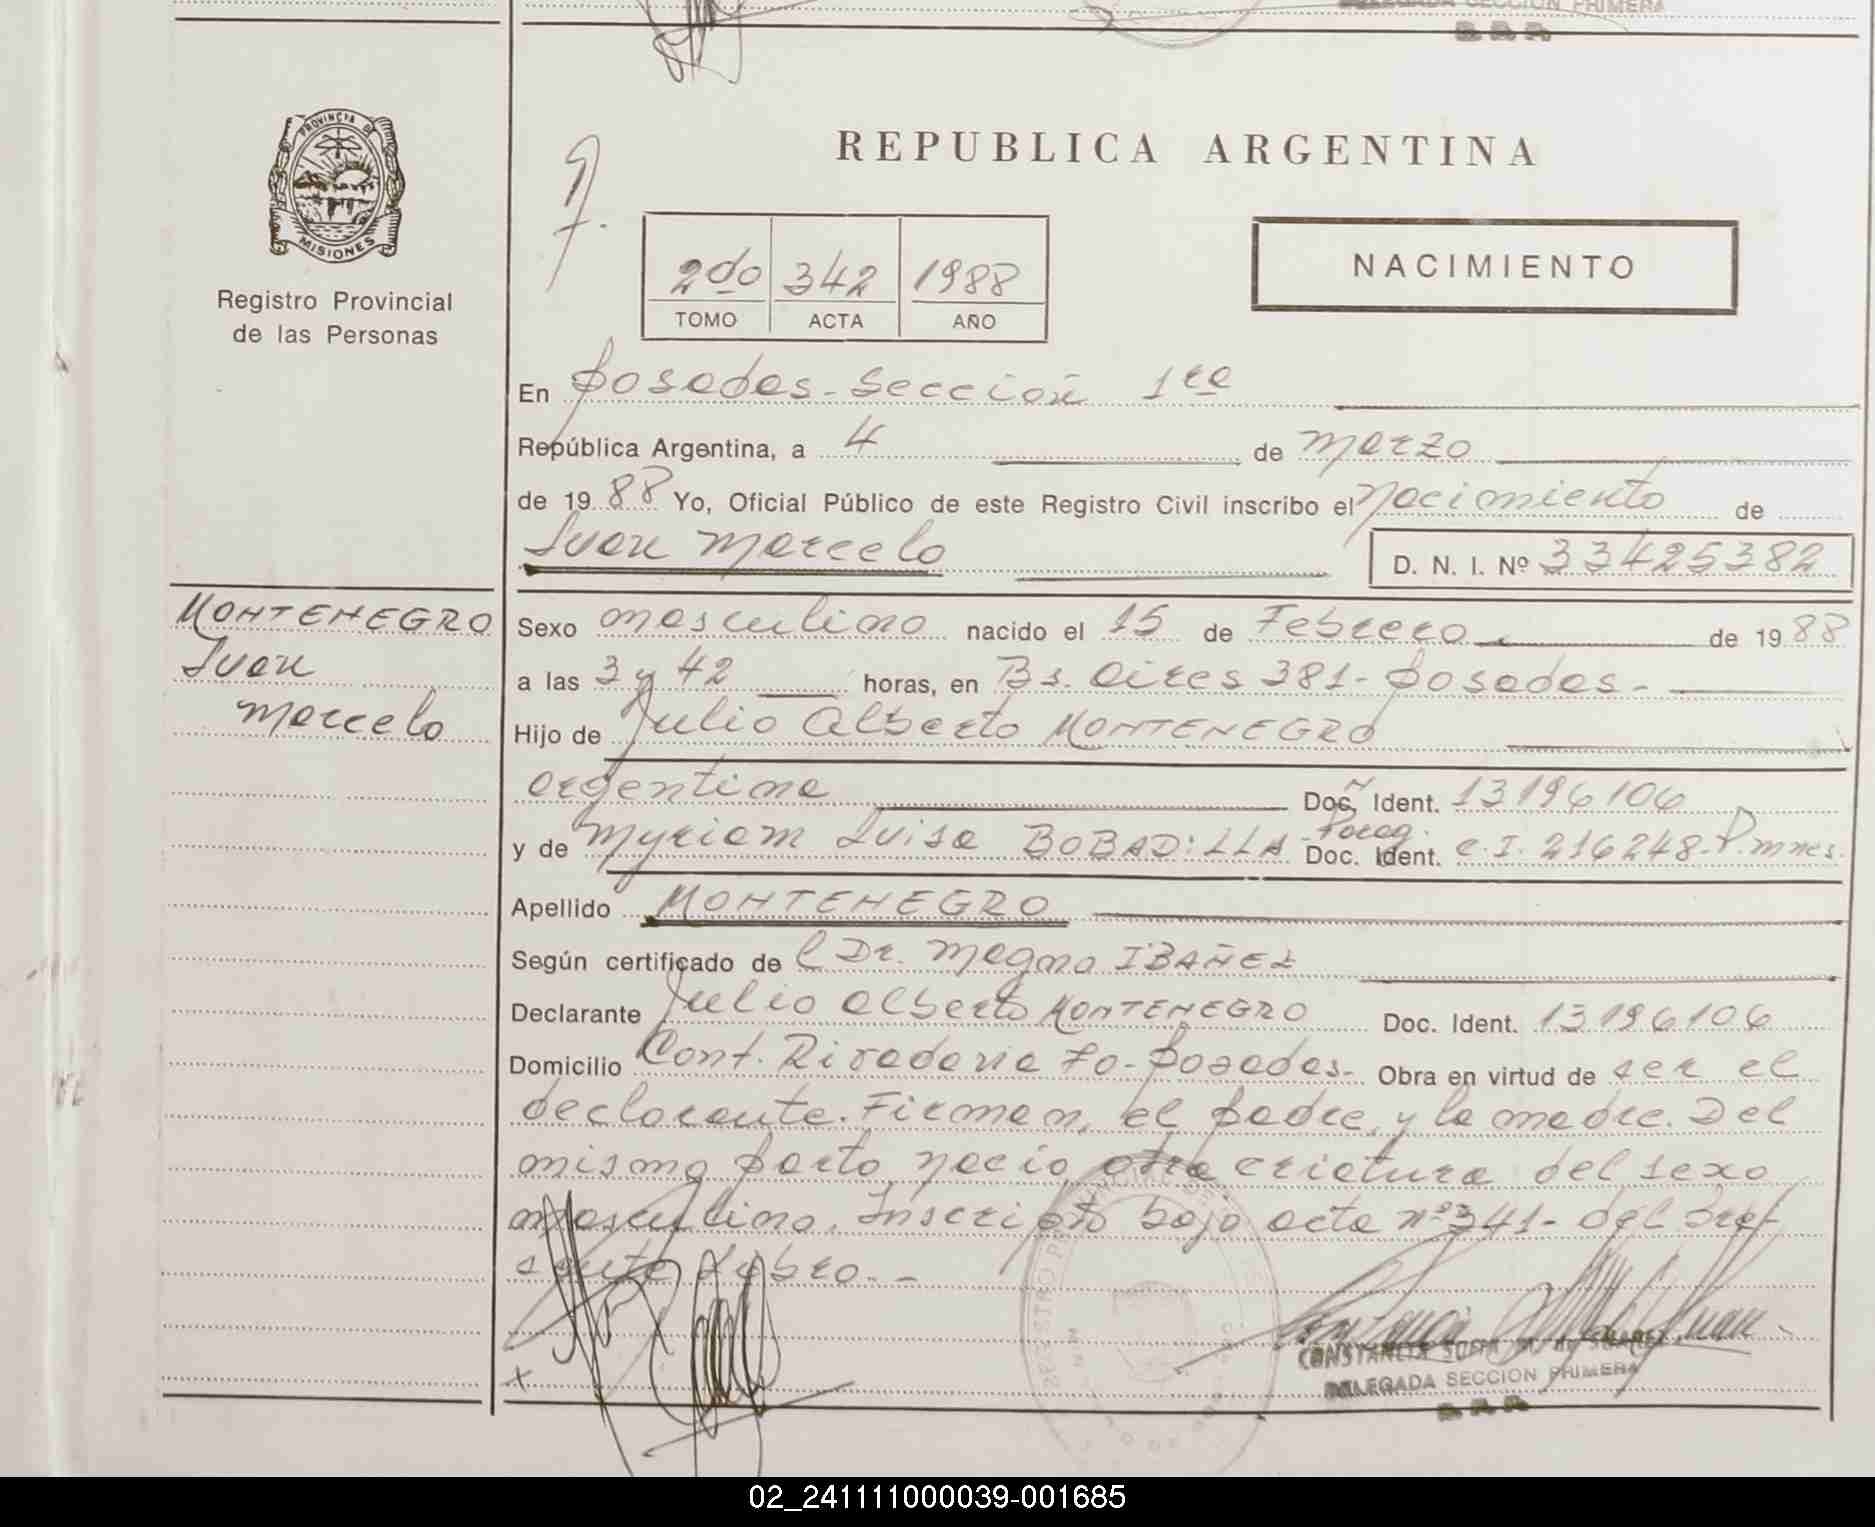 DELEGADA SECCION PRIMERA
PROVINCIA DE
MISIONES
Registro Provincial
de las Personas
REPUBLICA ARGENTINA
2do 342 1988
TOMO ACTA AÑO
NACIMIENTO
En Posadas - Sección 1ra
República Argentina, a 4 de marzo
de 1988 Yo, Oficial Público de este Registro Civil inscribo el nacimiento de
Juan Marcelo D. N. I. Nº 33425382
MONTENEGRO
Juan
Marcelo
Sexo masculino nacido el 15 de Febrero de 1988
a las 3 y 42 horas, en Bs. Aires 381 - Posadas -
Hijo de Julio Alberto MONTENEGRO
argentina Doc. Ident. 13196106
y de Myriam Luisa BOBADILLA Parag. Doc. Ident. C.I. 216248 - P. mnes.
Apellido MONTENEGRO
Según certificado de l Dr. Magno IBAÑEZ
Declarante Julio Alberto MONTENEGRO Doc. Ident. 13196106
Domicilio Cont. Rivadavia 70 - Posadas - Obra en virtud de ser el
declarante. Firman, el padre, y la madre. Del
mismo parto nacio otra criatura del sexo
masculino. Inscripto bajo acta nº 341 - del pre-
sente Libro. -
CONSTANCIA SOFIA M. de SUAREZ
DELEGADA SECCION PRIMERA
02_241111000039-001685